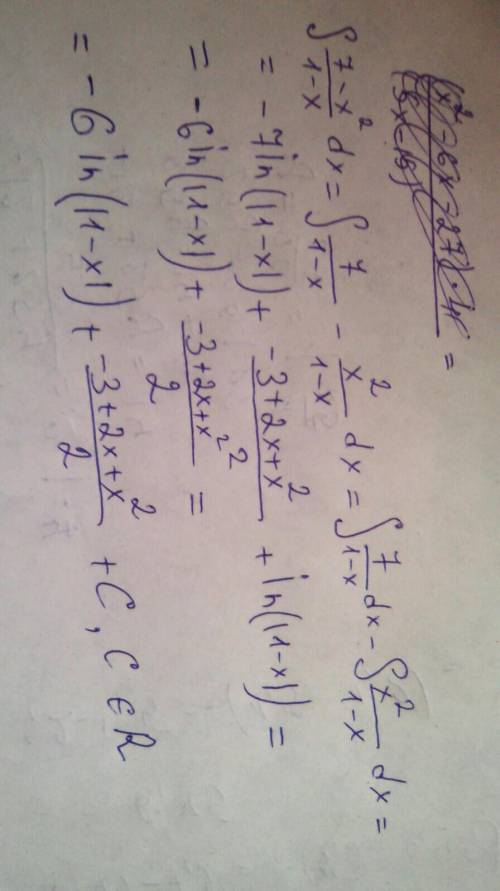 (x² - 6x - 27)
∫ (7-x²)/(1-x) dx = ∫ 7/(1-x) - x²/(1-x) dx = ∫ 7/(1-x) dx - ∫ x²/(1-x) dx =
= -7 ln(|1-x|) + (-3+2x+x²)/2 + ln(|1-x|) =
= -6 ln(|1-x|) + (-3+2x+x²)/2 =
= -6 ln(|1-x|) + (-3+2x+x²)/2 + C, C ∈ R